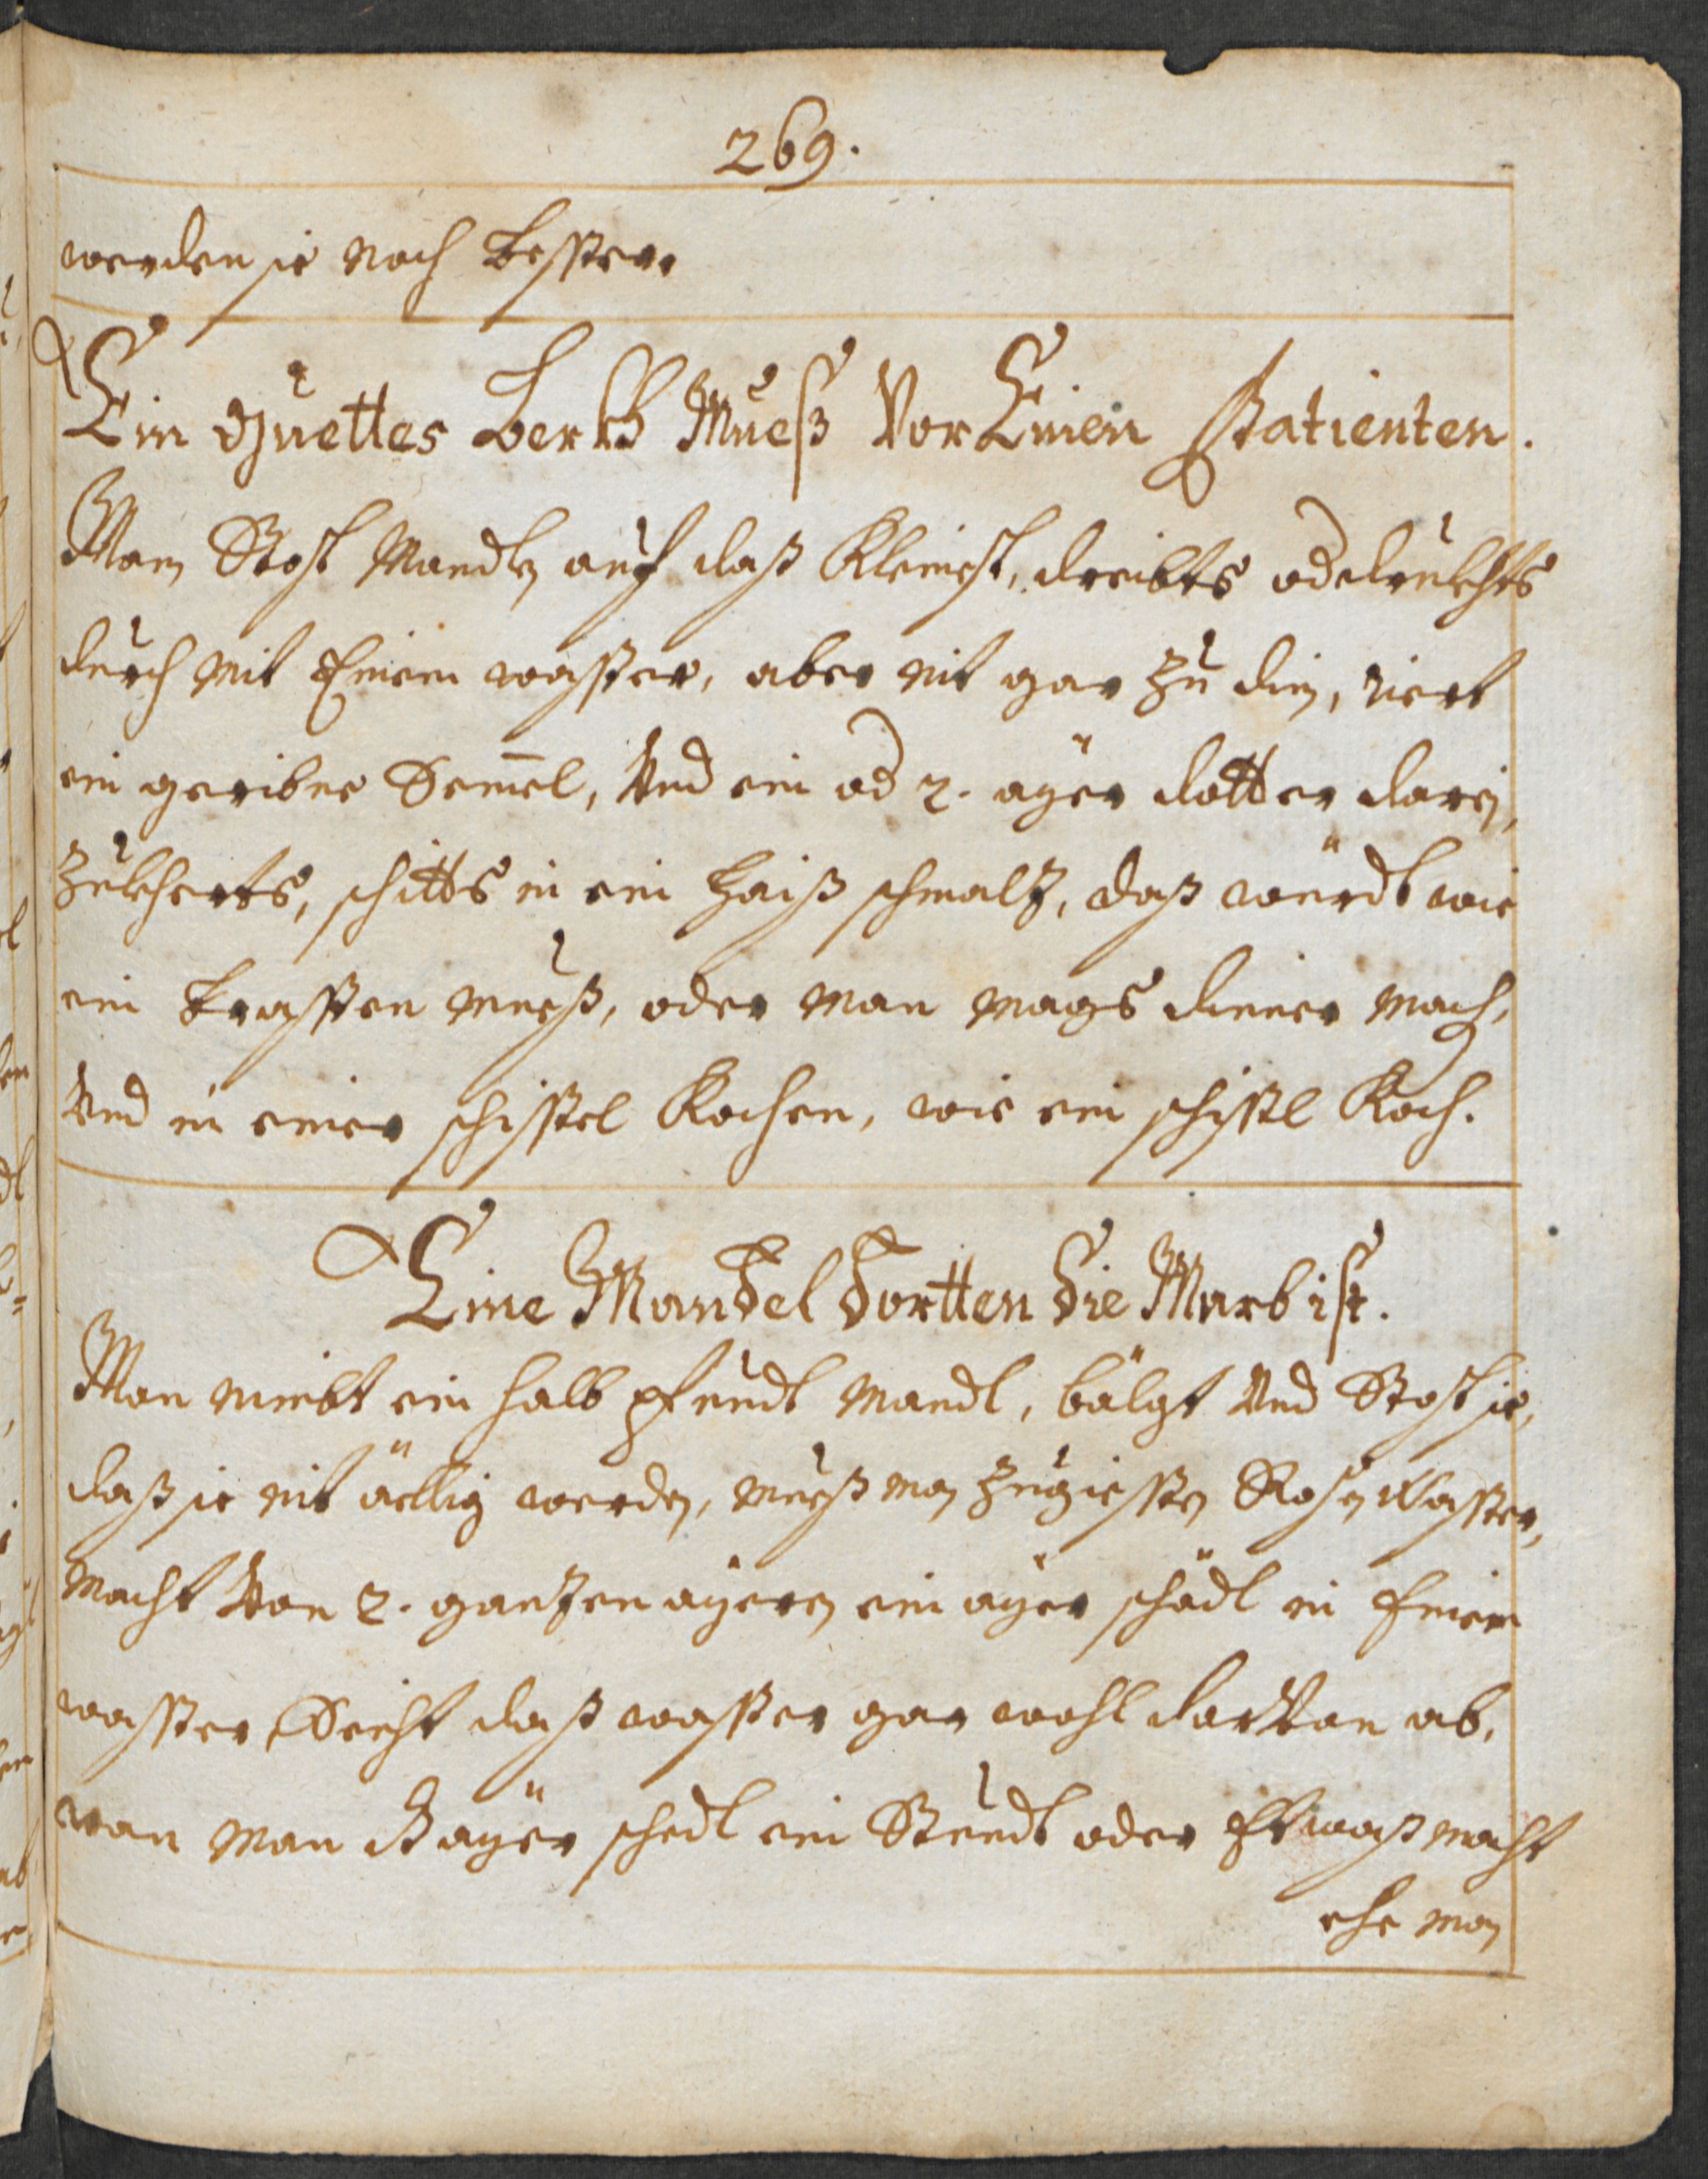 269.
werden sie noch besser.
Ein guettes Herz Mueß Vor Einen Patienten.
Man Stost Mandlen auf daß Kleinest, dreibts od druckhts
durch mit Einem wasser, aber nit gar zu din, riert
ein geribne Sem̅el, Und ein od 2. ayer dotter darein,
zukherts, schitts in ein haiß schmaltz, daß würdt wie
ein brassen mueß, oder man mags dinner machen,
Und in einer schissel Kochen, wie ein schissl Koch.
Eine Mandel Dortten die Marb ist.
Man nimbt ein halb pfundt mandl, bälgt Und Stost sie,
daß sie nit öellig werden, mueß man zugiessen Rosen Wasser,
macht Von 2. gantzen ayeren ein ayer schödl in Einem
wasser, Seicht daß wasser gar wohl darVon ab,
wan man d ayer schedl ein Stundt oder Etwaß macht
ehe man